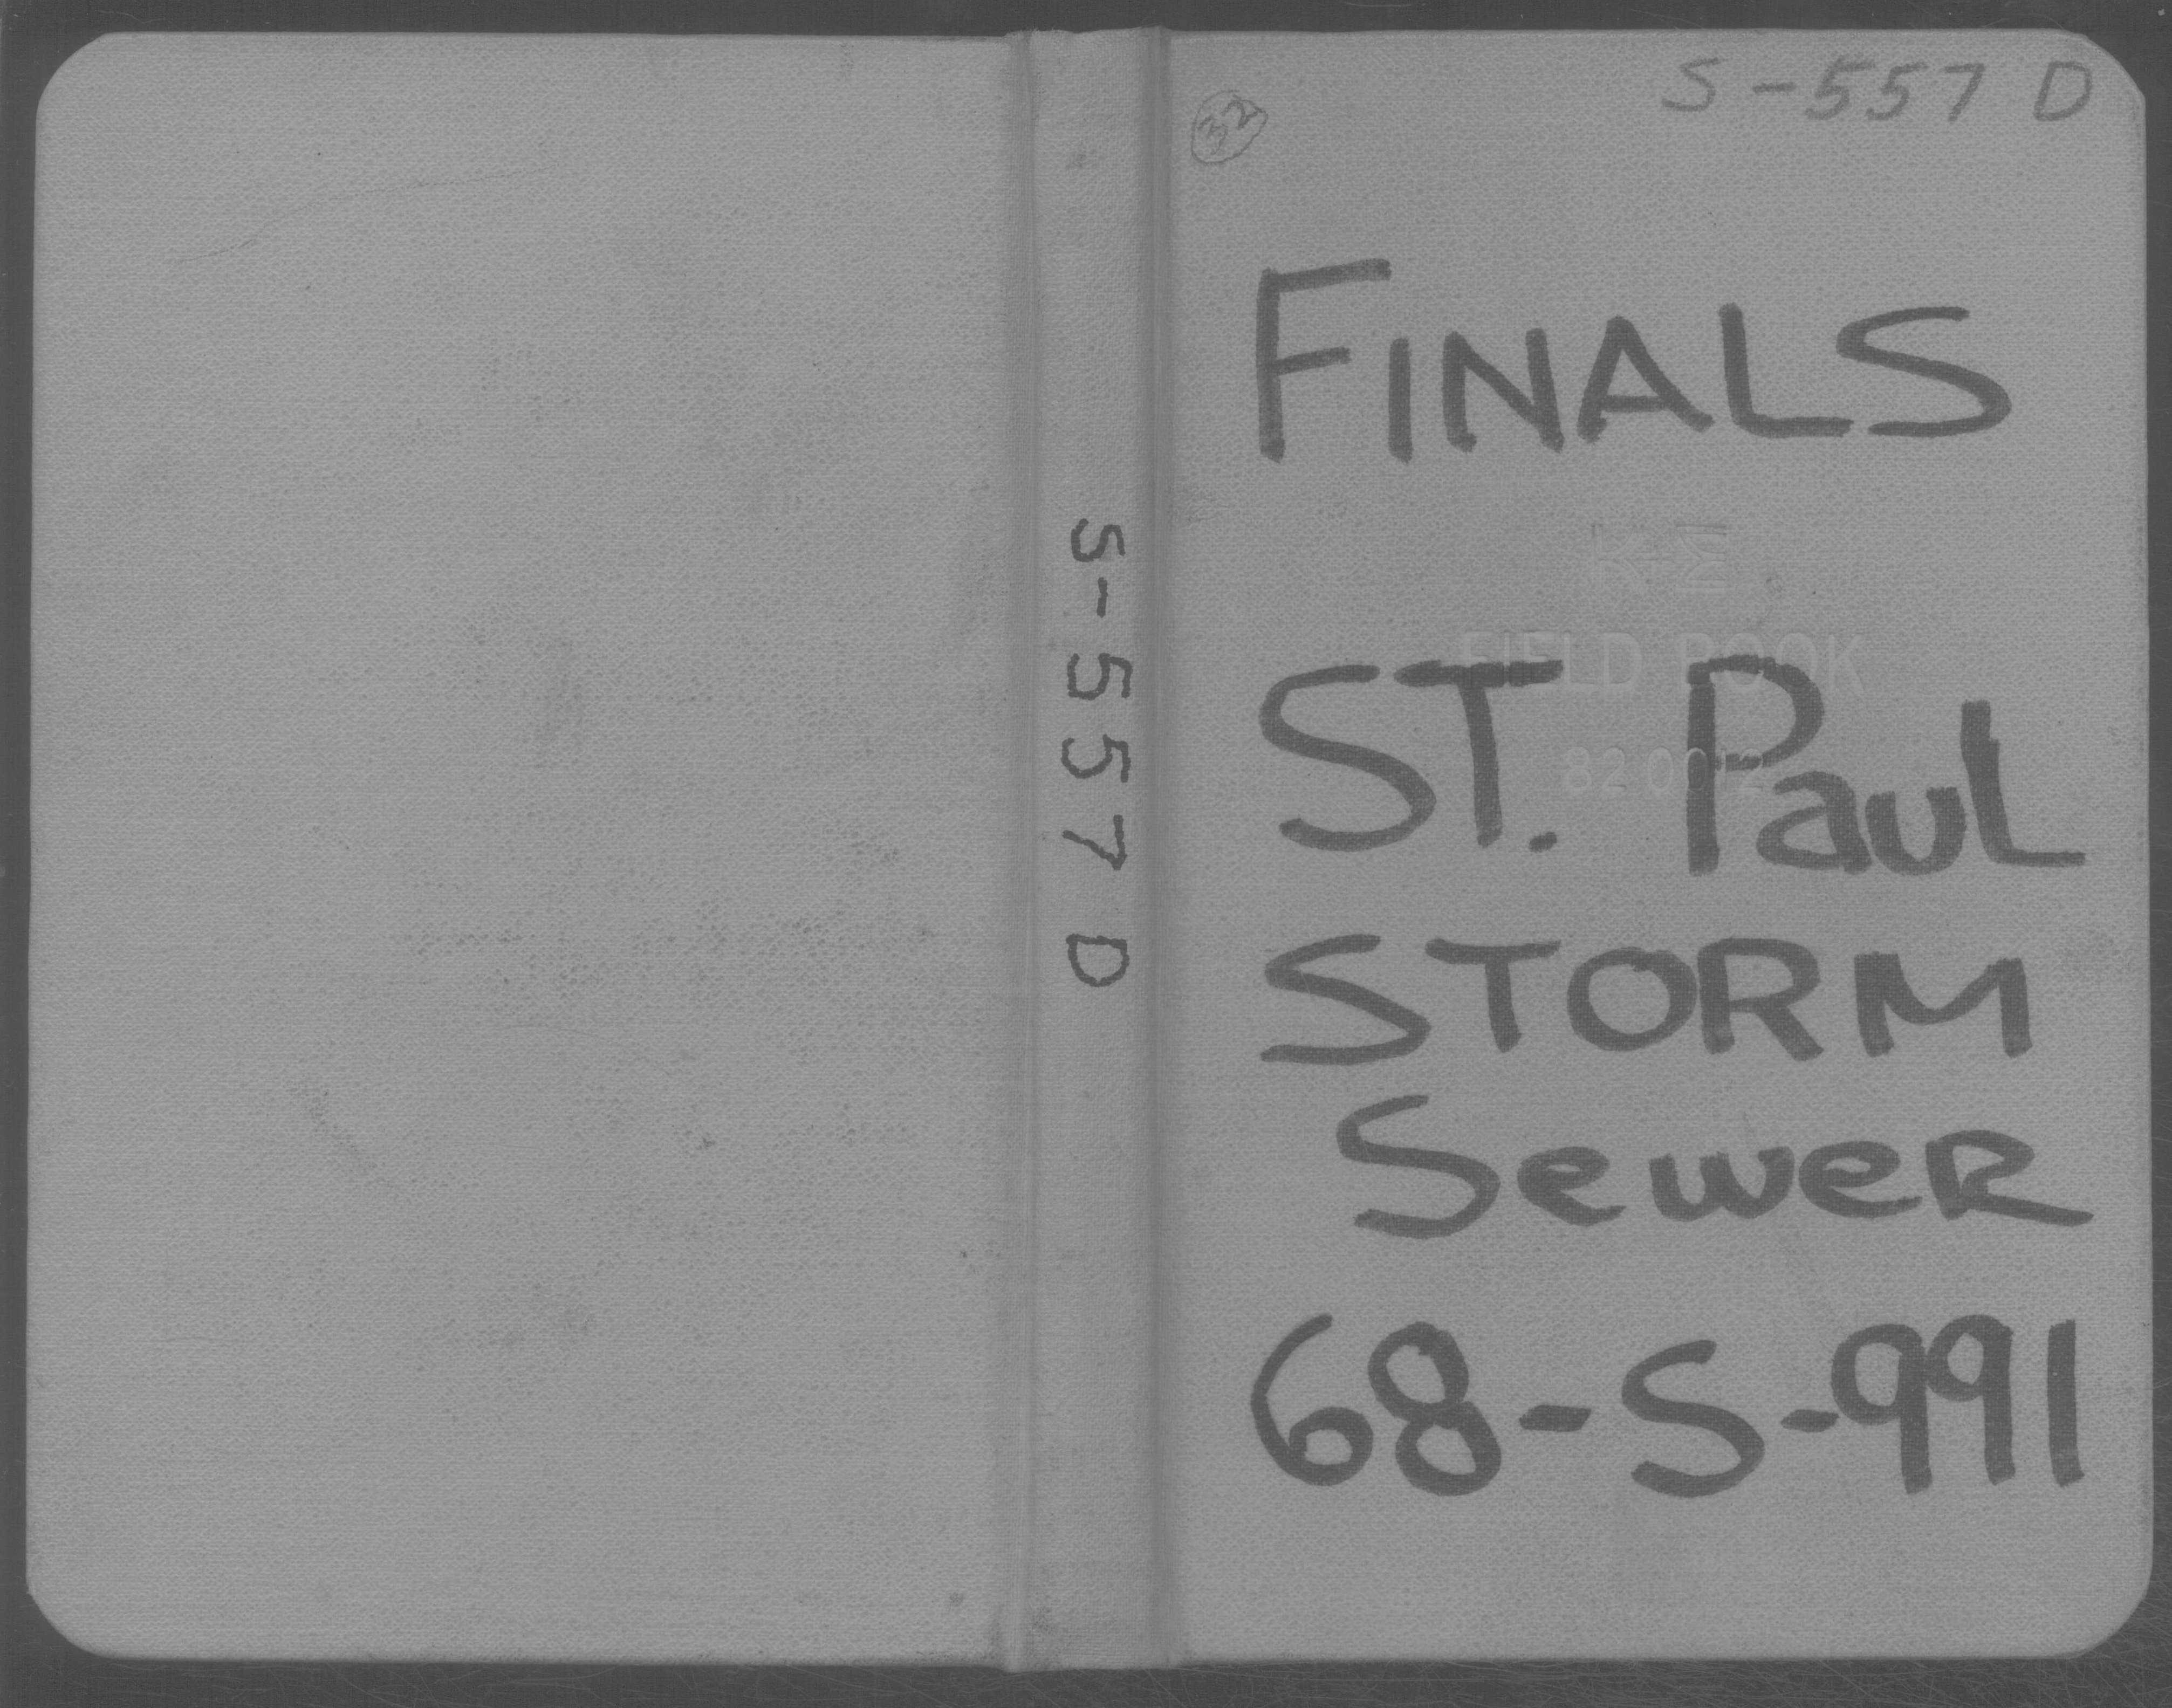 S-557 D
32
FINALS
K+E
FIELD BOOK
82 0012
ST. Paul
STORM
Sewer
68-S-991
S-557 D